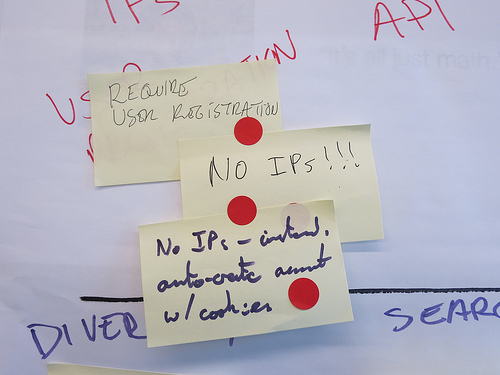 IPs
API
it's all just math
REQUIRE
USER REGISTRATION
NO IPs!!!
No IPs – instead,
auto-create account
w/ cookies
DIVER
SEARC